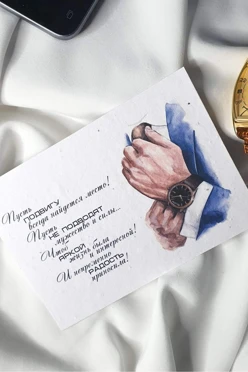 Пусть
ПОДВИГУ
всегда найдется место!
Пусть
НЕ ПОДВОДЯТ
мужество и силы...
Чтоб
жизнь была
ЯРКОЙ
и интересной!
И непременно
РАДОСТЬ
приносила!